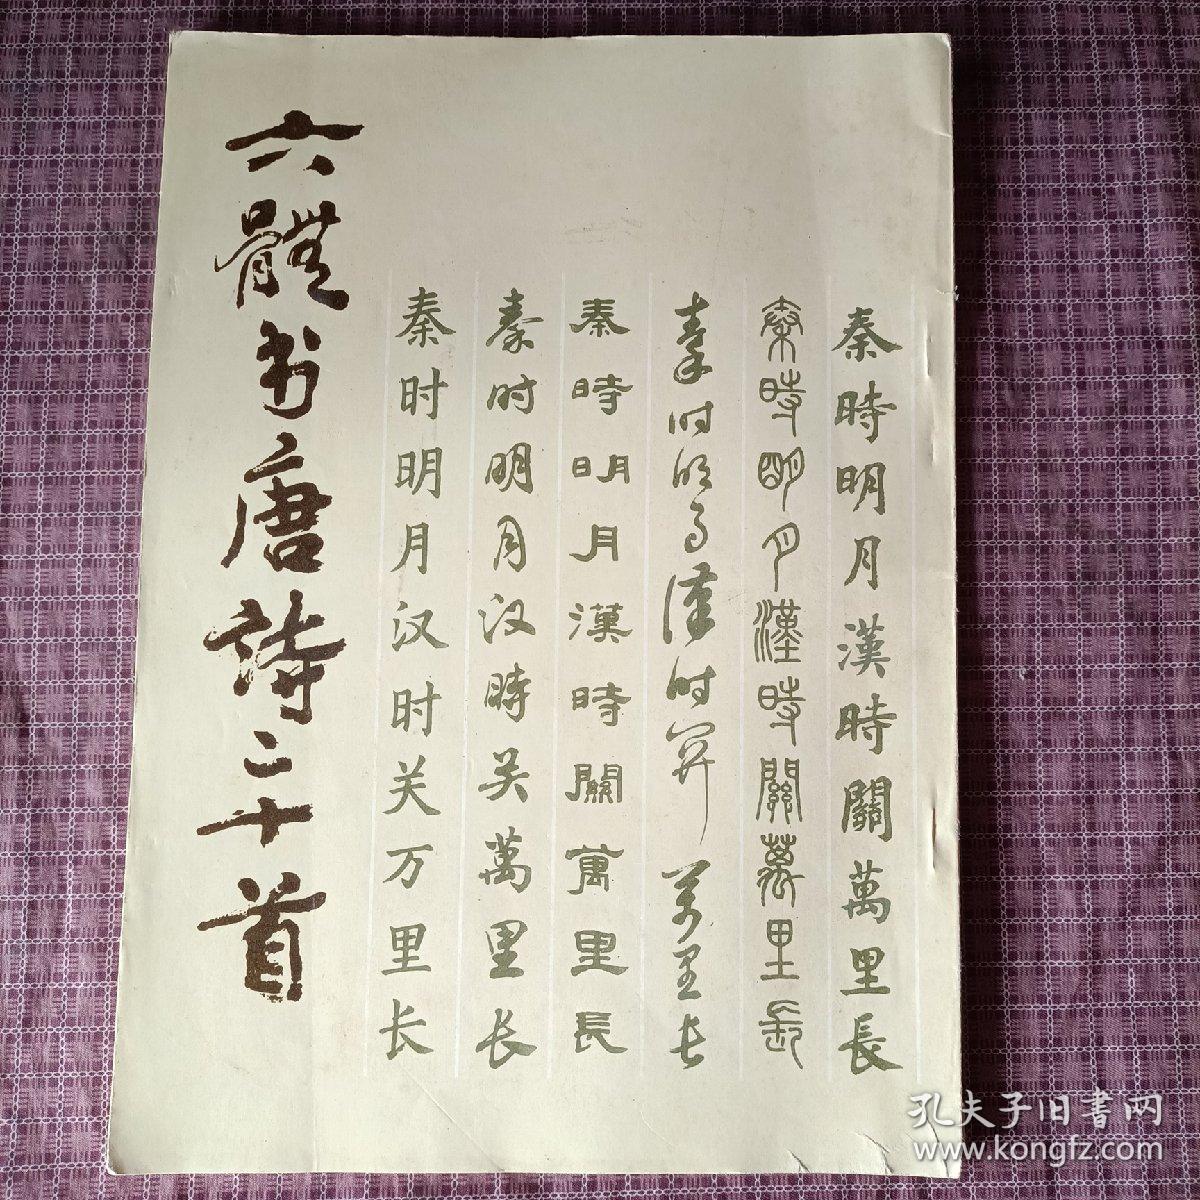 秦時明月漢時關萬里長
秦時明月漢時關萬里長
秦时明月漢时关万里长
秦時明月漢時關萬里長
秦时明月汉時关萬里长
秦时明月汉时关万里长
六體书唐詩二十首
孔夫子旧書网
www.kongfz.com